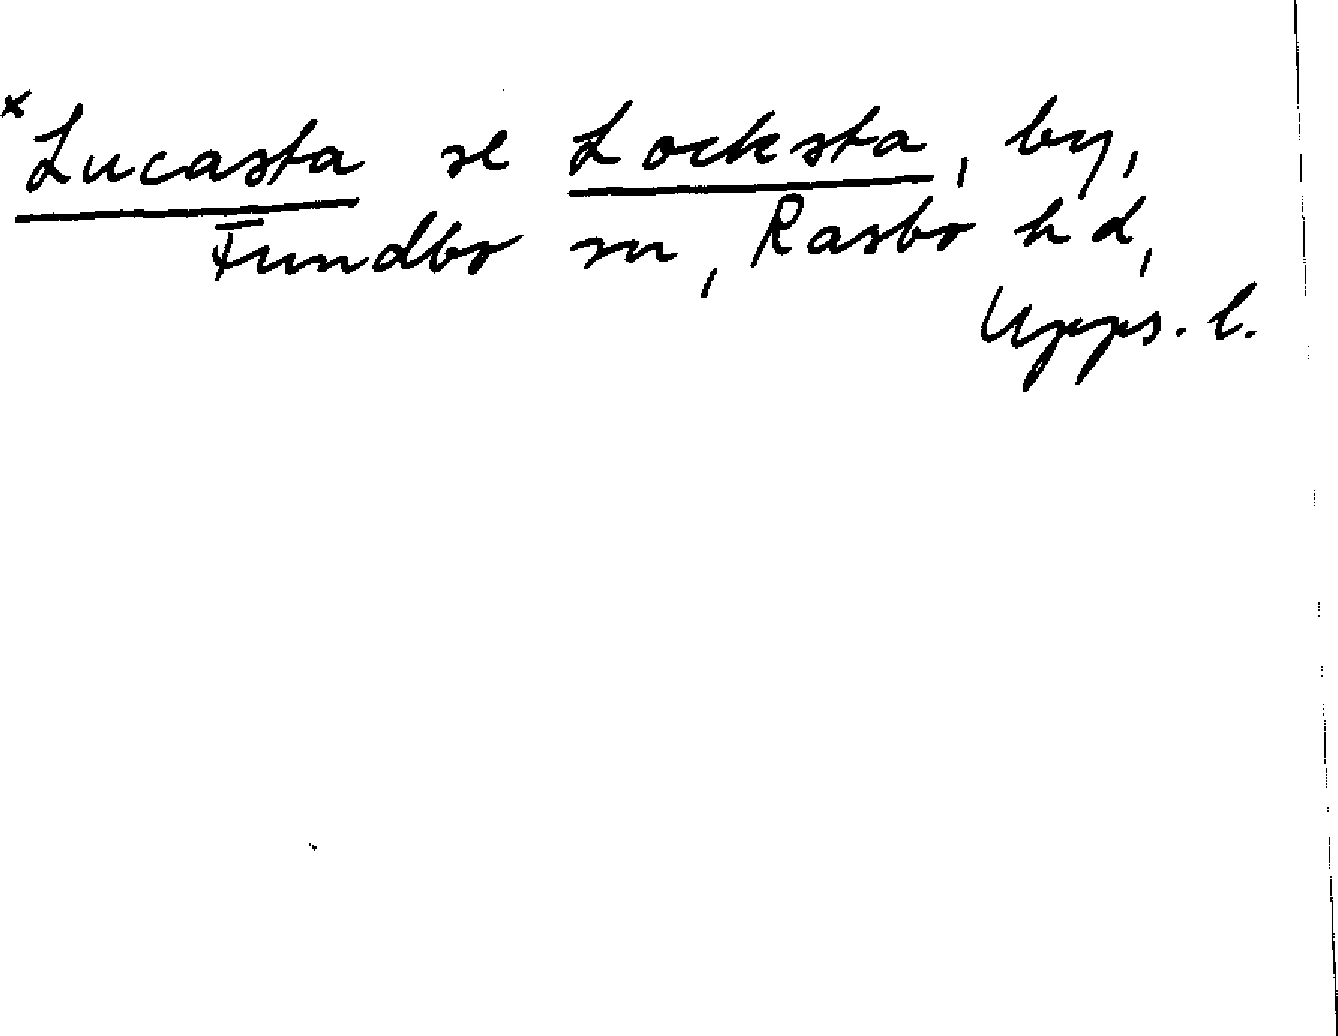 ×Lucasta se Locksta, by,
Fundbo sn, Rasbo hd,
Upps. l.